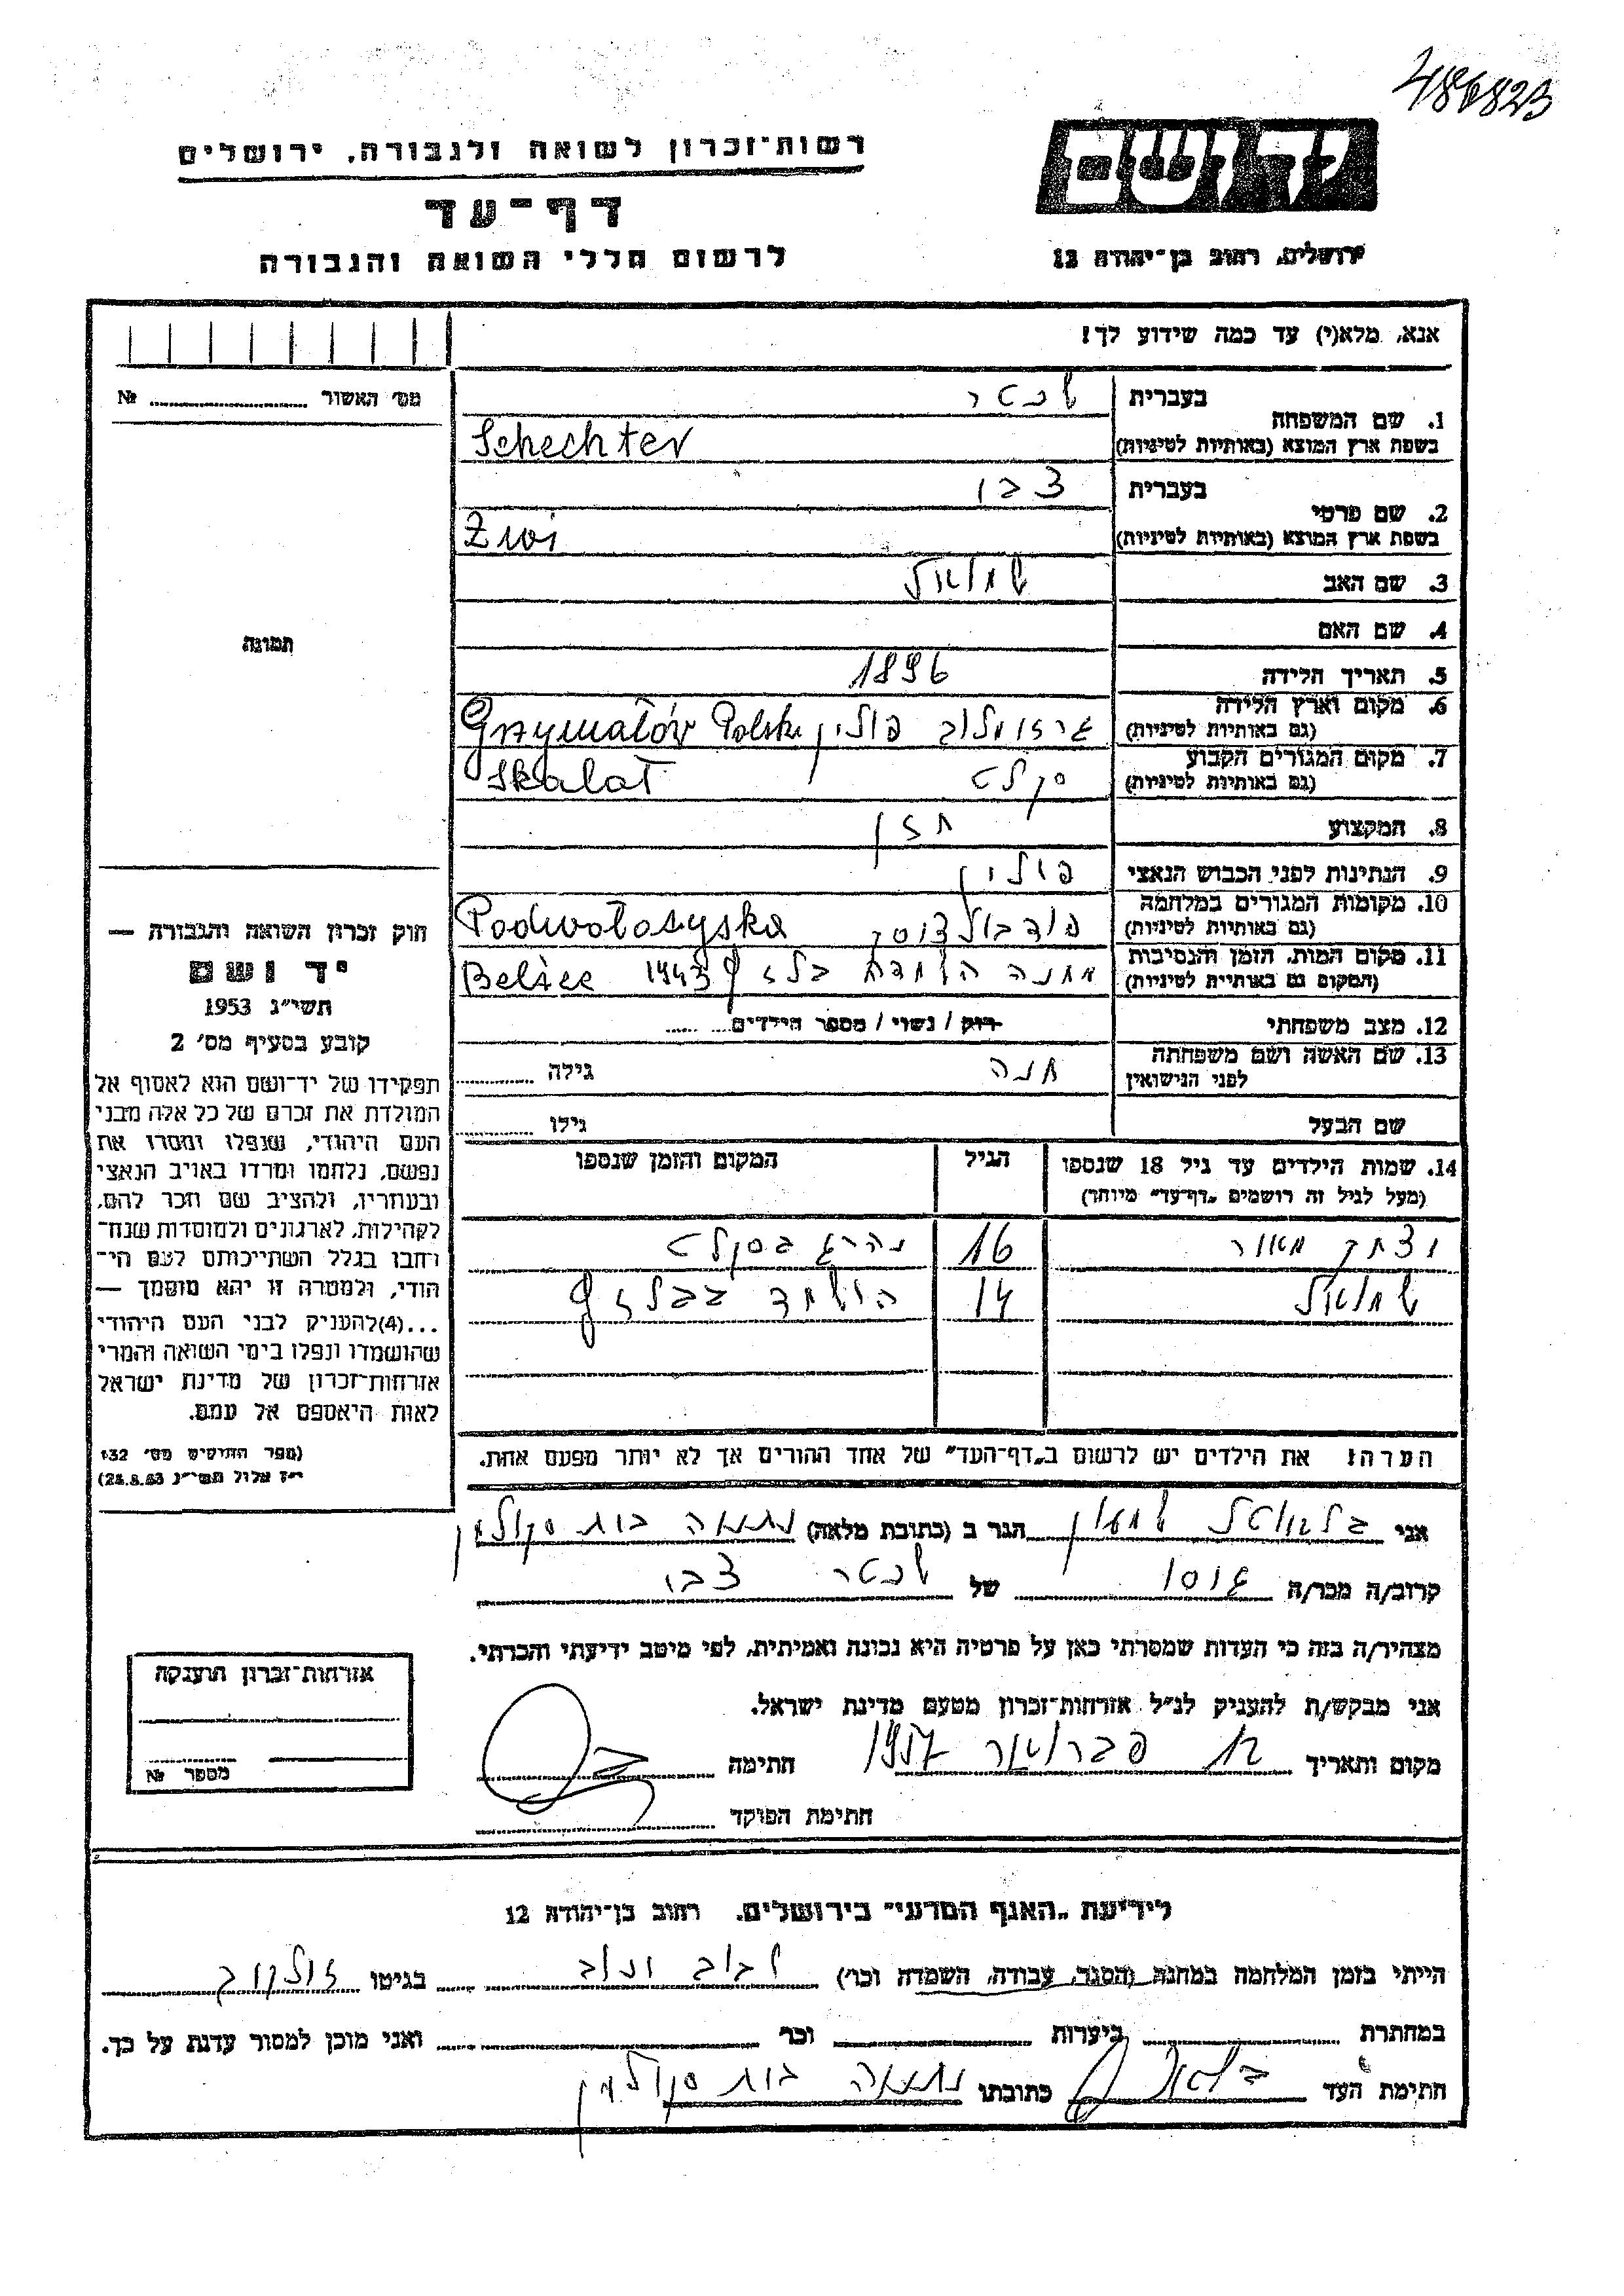 486823
יד ושם
ירושלים, רחוב בן־יהודה 12
רשות־זכרון לשואה ולגבורה, ירושלים
דף־עד
לרשום חללי השואה והגבורה
אנא, מלא(י) עד כמה שידוע לך!
מס׳ האשור № 
1. שם המשפחה בעברית שכטר
בשפת ארץ המוצא (באותיות לטיניות) Schechter
2. שם פרטי בעברית צבי
בשפת ארץ המוצא (באותיות לטיניות) Zwi
3. שם האב שמואל
4. שם האם
5. תאריך הלידה 1896
6. מקום וארץ הלידה (גם באותיות לטיניות) גרזימלוב פולין Grzymałów Polska
7. מקום המגורים הקבוע (גם באותיות לטיניות) סקלט Skałat
8. המקצוע חזן
9. הנתינות לפני הכבוש הנאצי פולין
10. מקומות המגורים במלחמה (גם באותיות לטיניות) Podwołoczyska
11. מקום המות, הזמן והנסיבות (המקום גם באותיות לטיניות) מחנה השמדה בלזץ 1943 Bełżec
12. מצב משפחתי רוק / נשוי / מספר הילדים
13. שם האשה ושם משפחתה לפני הנישואין חנה גילה
שם הבעל גילו
14. שמות הילדים עד גיל 18 שנספו
(מעל לגיל זה רושמים „דף־עד״ מיוחד)
הגיל
המקום והזמן שנספו
יצחק מאיר 16 נהרג בסקלט
שמואל 14 הושמד בבלזץ
הערה: את הילדים יש לרשום ב„דף־העד״ של אחד ההורים אך לא יותר מפעם אחת.
תמונה
חוק זכרון השואה והגבורה —
יד ושם
תשי״ג 1953
קובע בסעיף מס׳ 2
תפקידו של יד־ושם הוא לאסוף אל
המולדת את זכרם של כל אלה מבני
העם היהודי, שנפלו ומסרו את
נפשם, נלחמו ומרדו באויב הנאצי
ובעוזריו, ולהציב שם וזכר להם,
לקהילות, לארגונים ולמוסדות שנח־
רבו בגלל השתייכותם לעם הי־
הודי, ולמטרה זו יהא מוסמך —
...(4)להעניק לבני העם היהודי
שהושמדו ונפלו בימי השואה והמרי
אזרחות־זכרון של מדינת ישראל
לאות היאספם אל עמם.
(ספר החוקים מס׳ 132
י״ז אלול תשי״ג 28.8.53)
אני שמעון הגר ב (כתובת מלאה) נתניה בית סקולמן
קרוב/ה מכר/ה גיסו של שכטר צבי
מצהיר/ה בזה כי העדות שמסרתי כאן על פרטיה היא נכונה ואמיתית, לפי מיטב ידיעתי והכרתי.
אני מבקש/ת להעניק לנ״ל אזרחות־זכרון מטעם מדינת ישראל.
מקום ותאריך 12 פברואר 1957 חתימה
חתימת הפוקד
אזרחות־זכרון הוענקה
מספר №
לידיעת „האגף המדעי״ בירושלים, רחוב בן־יהודה 12
הייתי בזמן המלחמה במחנה (הסגר, עבודה, השמדה וכו׳) לבוב בגיטו זולקוב
במחתרת ביערות וכו׳ ואני מוכן למסור עדות על כך.
חתימת העד כתובתו נתניה בית סקולמן